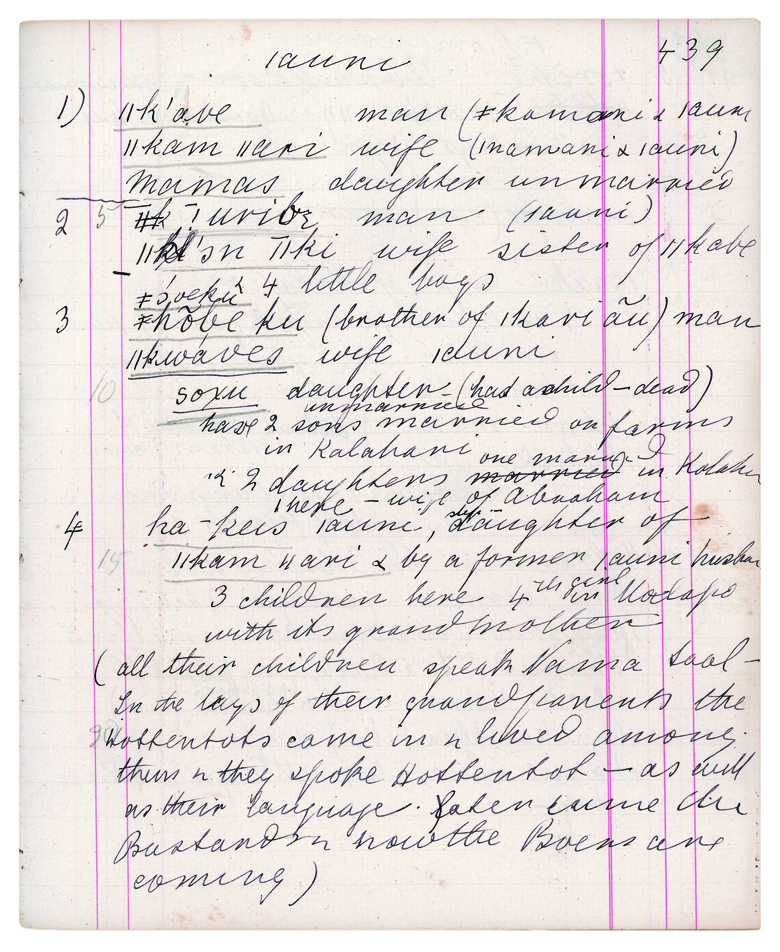 ıauni 439
1) ǁk'abe man (ǂkomani & ıauni
ǁkam ǁari wife (ınamani & ıauni)
Mamas daughter unmarried
2 5 man (ıauni)
wife sister of ǁkabe
& 4 little boys
3 ǂhōbe ku (brother of ıkari ãu) man
ǁkwaves wife ıauni
10 soxu daughter - (had a child - dead)
unmarried
have 2 sons married on farms
in Kalahari
one married
" & 2 daughters in Kalahari
1 here - wife of Abraham
4 ha-keis ıauni, step-daughter of
15 ǁkam ǁari & by a former ıauni husban
3 children here 4th girl in
with its grandmother
(all their children speak Nama taal -
In the days of their grandparents the
20 Hottentots came in & lived among
them & they spoke Hottentot - as well
as their language. Later came the
Bastards & now the Boers are
coming)